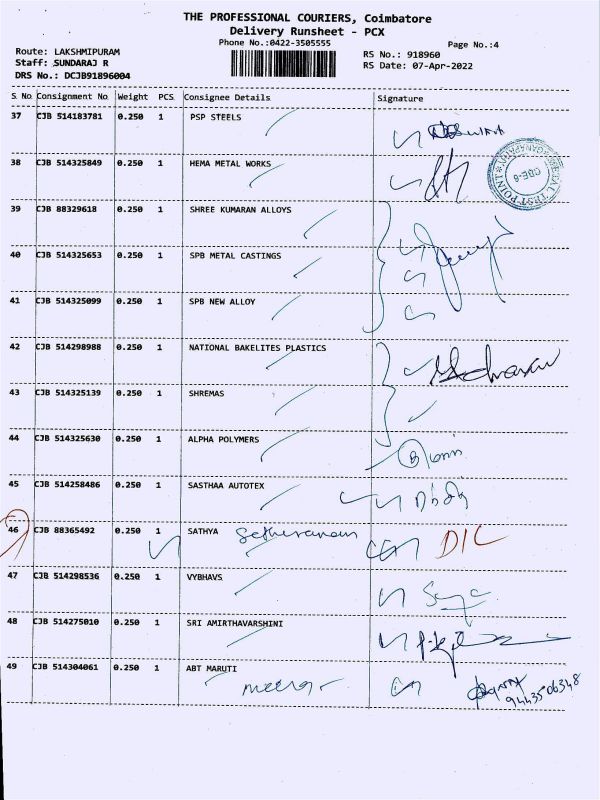 THE PROFESSIONAL COURIERS, Coimbatore
Delivery Runsheet - PCX
Phone No.:0422-3505555
Page No.:4
Route: LAKSHMIPURAM
Staff: SUNDARAJ R
DRS No.: DCJB91896004
RS No.: 918960
RS Date: 07-Apr-2022
S No Consignment No Weight PCS Consignee Details Signature
37 CJB 514183781 0.250 1 PSP STEELS
38 CJB 514325849 0.250 1 HEMA METAL WORKS
METAL TEST POINT
CBE-6
39 CJB 88329618 0.250 1 SHREE KUMARAN ALLOYS
40 CJB 514325653 0.250 1 SPB METAL CASTINGS
41 CJB 514325099 0.250 1 SPB NEW ALLOY
42 CJB 514298988 0.250 1 NATIONAL BAKELITES PLASTICS
43 CJB 514325139 0.250 1 SHREMAS
44 CJB 514325630 0.250 1 ALPHA POLYMERS
45 CJB 514258486 0.250 1 SASTHAA AUTOTEX
46 CJB 88365492 0.250 1 SATHYA D/C
47 CJB 514298536 0.250 1 VYBHAVS
48 CJB 514275010 0.250 1 SRI AMIRTHAVARSHINI
49 CJB 514304061 0.250 1 ABT MARUTI
meera
9443506348